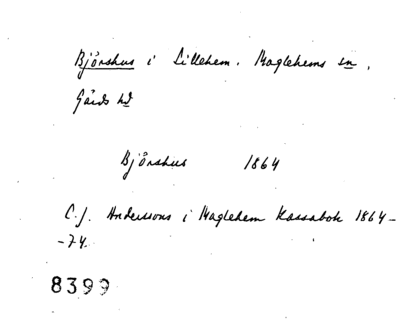 Björshus i Lillehem. Maglehems sn.
Gärds hd
Björshus 1864
C.J. Anderssons i Maglehem Kassabok 1864-
-74.
8399